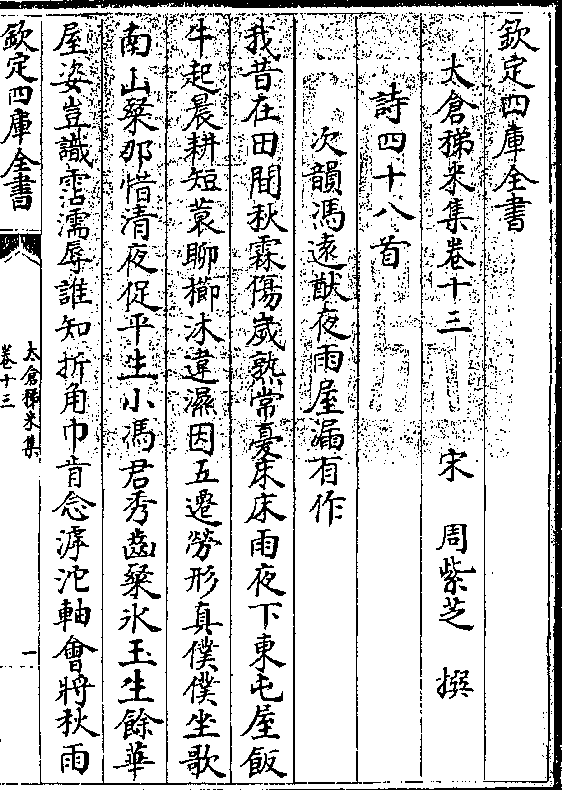 欽定四庫全書
太倉稊米集卷十三　宋　周紫芝　撰
詩四十八首
次韻馮遠猷夜雨屋漏有作
我昔在田間秋霖傷歲熟常憂床床雨夜下東屯屋飯
牛起晨耕短蓑聊櫛沐違濕因五遷勞形真僕僕坐歌
南山粲那惜清夜促平生小馮君秀齒粲氷玉生餘華
屋姿豈識霑濡辱誰知折角巾肯念滹沱軸會將秋雨
欽定四庫全書
太倉稊米集
卷十三
一